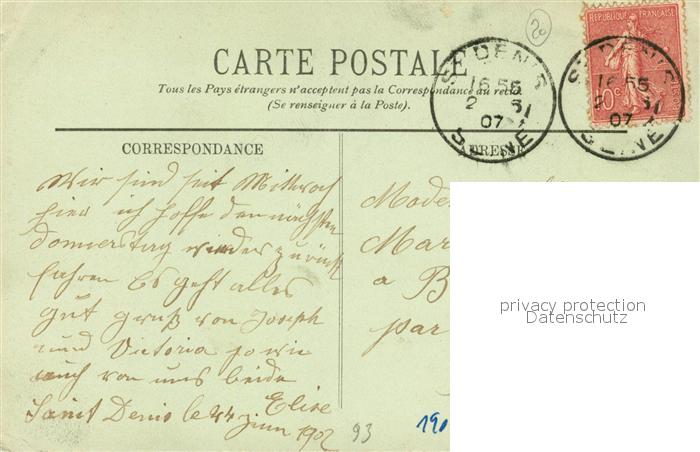 20
RÉPUBLIQUE FRANÇAISE
10c
CARTE POSTALE
Tous les Pays étrangers n'acceptent pas la Correspondance au recto
(Se renseigner à la Poste).
ST DENIS
16 55
07
SEINE
ST DENIS
16 55
07
SEINE
CORRESPONDANCE
ADRESSE
Wir sind seit Mittwoch
hier ich hoffe den nächsten
Donnerstag wieder zurück
fahren Es geht alles
gut gruß von Joseph
und Victoria so wie
auch von uns beide
Elise
Sanct Denis le 24
Juin 1907
Mar
a B
par
93
190
privacy protection
Datenschutz